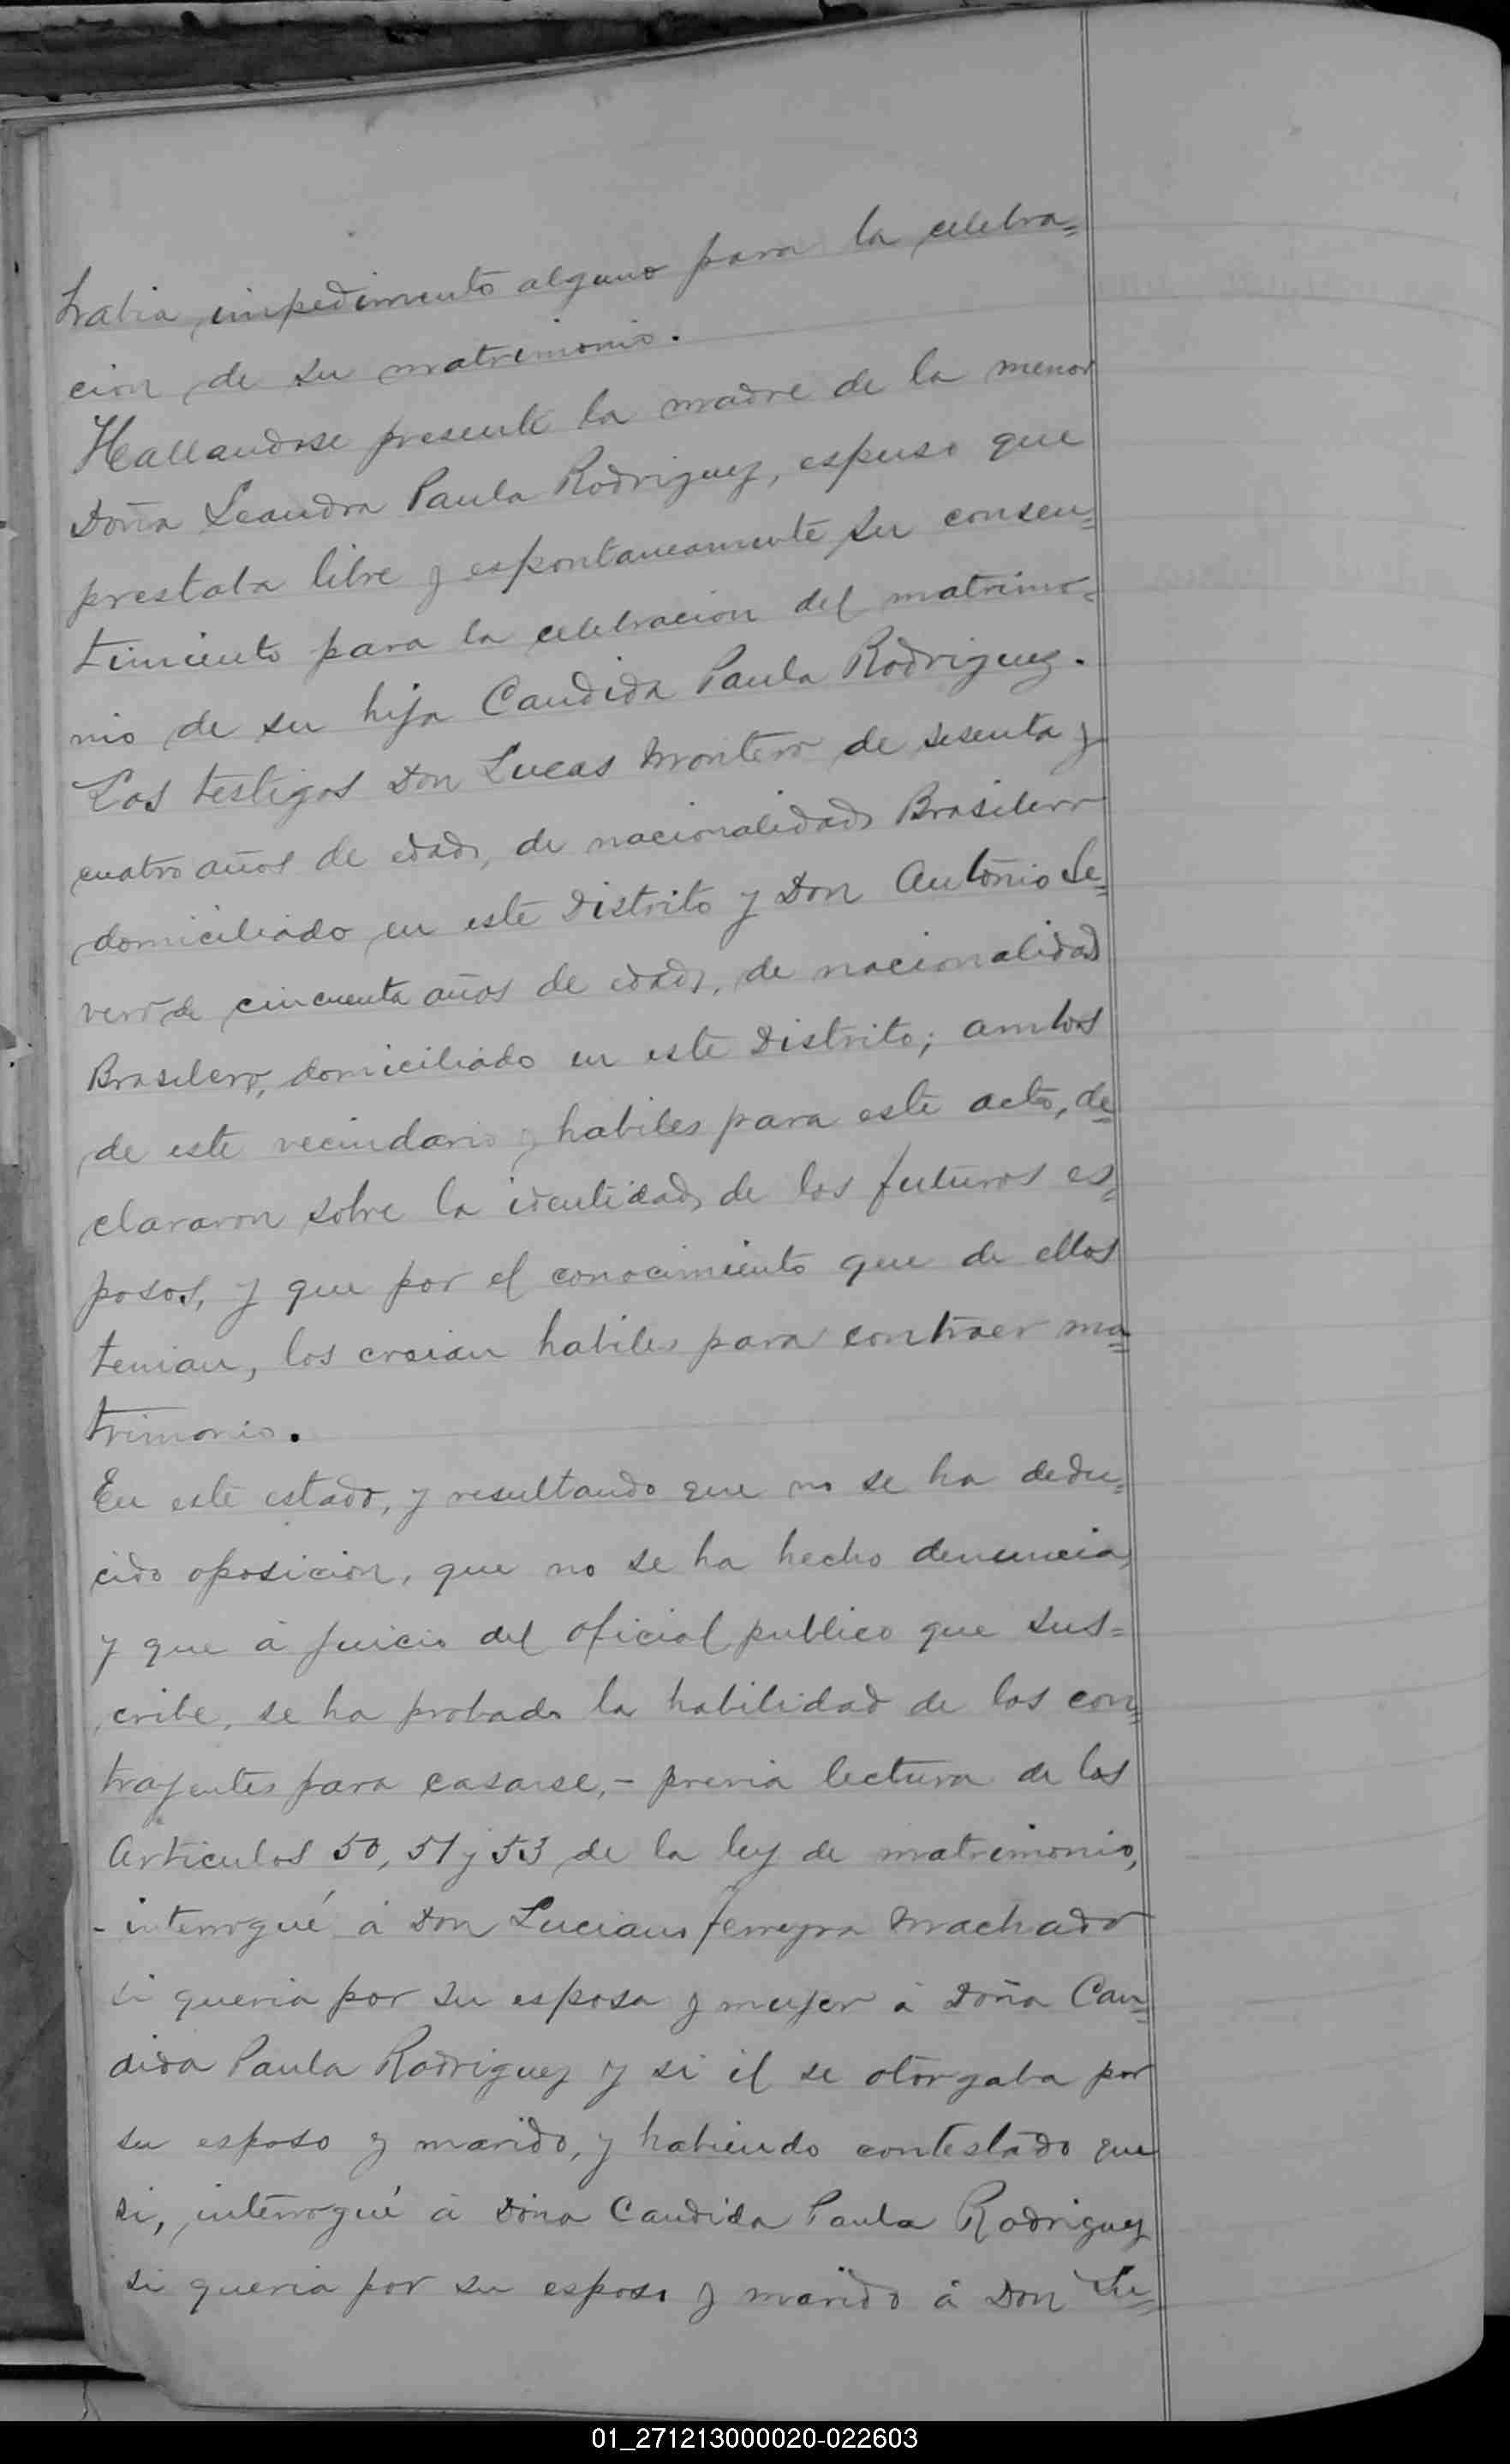 habia impedimento alguno para la celebra=
cion de su matrimonio.
Hallandose presente la madre de la menor
Doña Leandra Paula Rodriguez, espuso que
prestaba libre y espontaneamente su consen=
timiento para la celebracion del matrimo=
nio de su hija Candida Paula Rodriguez.
Los testigos Don Lucas Montero de sesenta y
cuatro años de edad, de nacionalidad Brasilero
domiciliado en este Distrito y Don Antonio Se=
vero de cincuenta años de edad, de nacionalidad
Brasilero, domiciliado en este Distrito; ambos
de este vecindario y habiles para este acto, de=
clararon sobre la identidad de los futuros es=
posos, y que por el conocimiento que de ellos
tenian, los creian habiles para contraer ma=
trimonio.
En este estado, y resultando que no se ha dedu=
cido oposicion, que no se ha hecho denuncia,
y que á juicio del oficial publico que sus=
cribe, se ha probado la habilidad de los con=
trayentes para casarse,- previa lectura de los
Articulos 50, 51 y 53 de la ley de matrimonio,
- interrogué á Don Luciano Ferreyra Machado
si queria por su esposa y mujer á Doña Can=
dida Paula Rodriguez y si él se otorgaba por
su esposo y marido, y habiendo contestado que
si, interrogué á Doña Candida Paula Rodriguez
si queria por su esposo y marido á Don Lu=
01_271213000020-022603